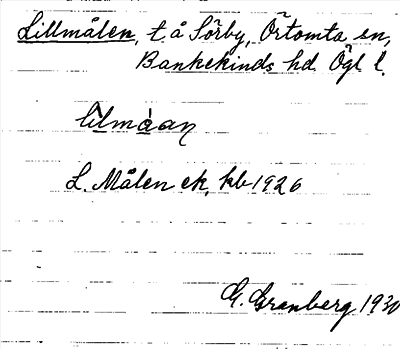 Lillmålen, t. å Sörby, Örtomta sn,
Bankekinds hd Ögl l.
lìlmåan
L. Målen ek, kb 1926
G. Granberg 1930